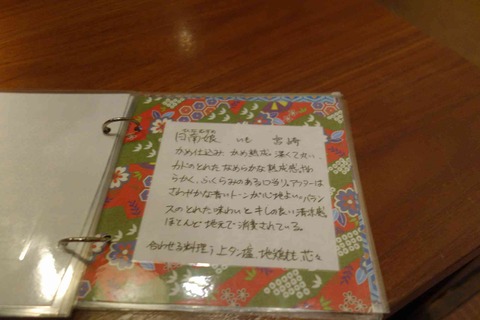 ひなむすめ
日南娘 いも 宮崎
かめ仕込み、かめ熟成。濃くて丸い
カドのとれたなめらかな熟成感。やわ
らかく、ふくらみのある口当り。アフターは
さわやかな青いトーンが心地よい。バラン
スのとれた味わいとキレの良い清涼感
ほとんど地元で消費されている。
合わせる料理→上タン塩、地鶏